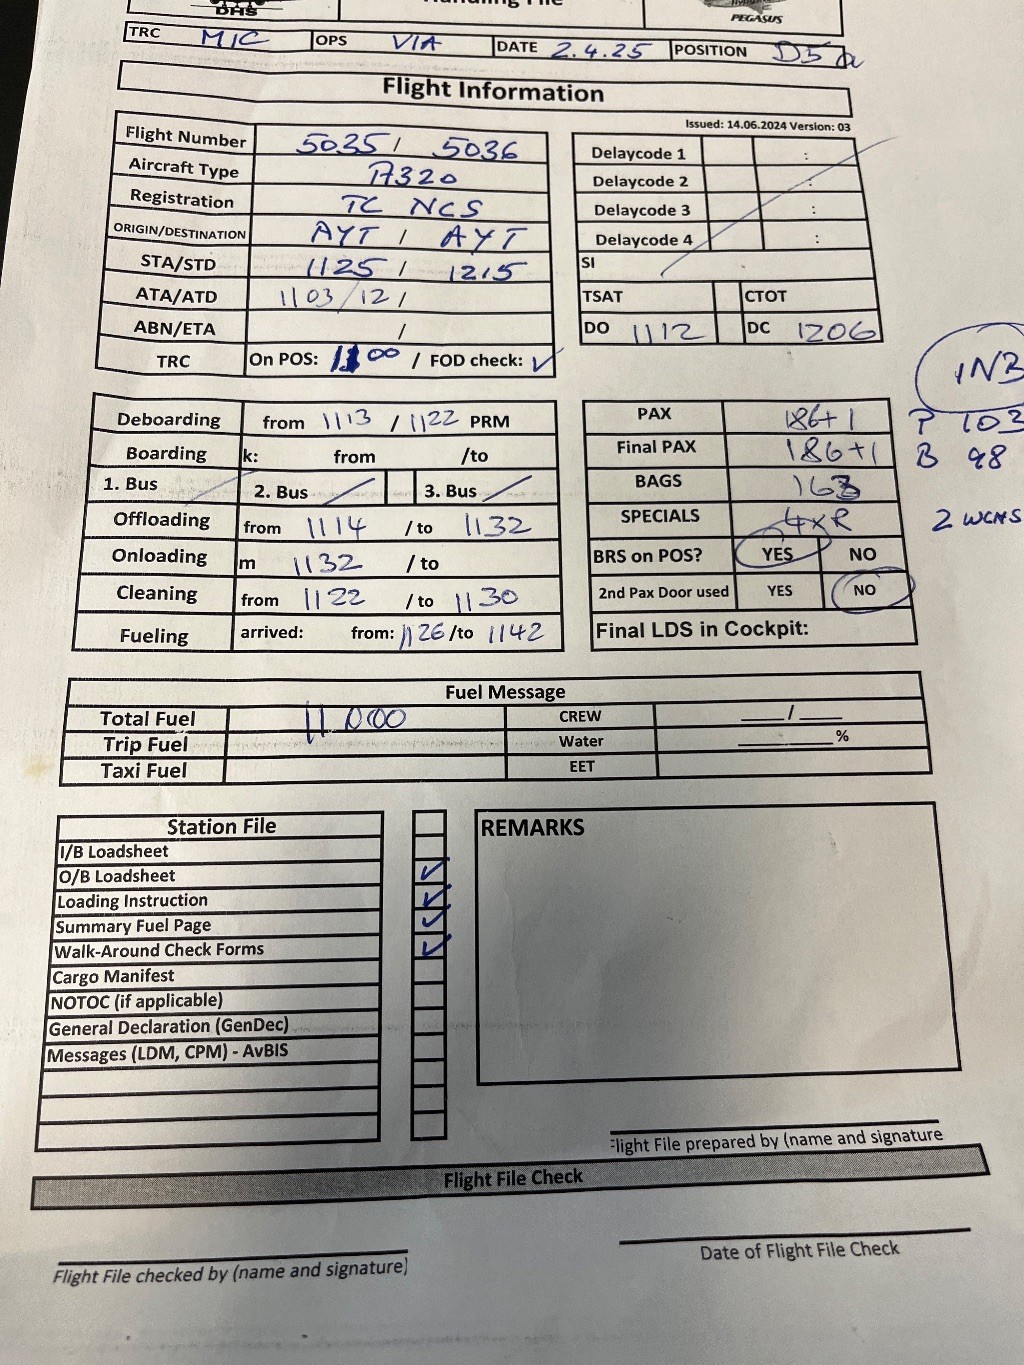 DHS
Handling File
PEGASUS
TRC MIC OPS VIA DATE 2.4.25 POSITION D5a
Flight Information
Issued: 14.06.2024 Version: 03
Flight Number 5035 / 5036
Aircraft Type A320
Registration TC NCS
ORIGIN/DESTINATION AYT / AYT
STA/STD 1125 / 1215
ATA/ATD 1103 / 12 /
ABN/ETA /
TRC On POS: 1100 / FOD check: ✓
Delaycode 1 :
Delaycode 2 :
Delaycode 3 :
Delaycode 4 :
SI
TSAT CTOT
DO 1112 DC 1206
Deboarding from 1113 / 1122 PRM
Boarding k: from /to
1. Bus 2. Bus 3. Bus
Offloading from 1114 / to 1132
Onloading m 1132 / to
Cleaning from 1122 / to 1130
Fueling arrived: from: 1126 /to 1142
PAX 186+1
Final PAX 186+1
BAGS 163
SPECIALS 4xR
BRS on POS? YES NO
2nd Pax Door used YES NO
Final LDS in Cockpit:
INB
P 103
B 98
2 WCHS
Fuel Message
Total Fuel 11 000 CREW ___/___
Trip Fuel Water ______%
Taxi Fuel EET
Station File
I/B Loadsheet
O/B Loadsheet ✓
Loading Instruction ✓
Summary Fuel Page ✓
Walk-Around Check Forms ✓
Cargo Manifest
NOTOC (if applicable)
General Declaration (GenDec)
Messages (LDM, CPM) - AvBIS
REMARKS
Flight File prepared by (name and signature
Flight File Check
Flight File checked by (name and signature)
Date of Flight File Check